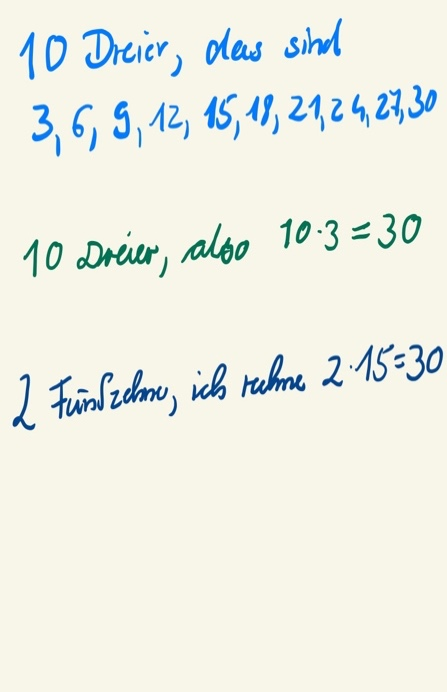 10 Dreier, das sind
3, 6, 9, 12, 15, 18, 21, 24, 27, 30
10 Dreier, also 10·3=30
2 Fünfzehner, ich rechne 2·15=30